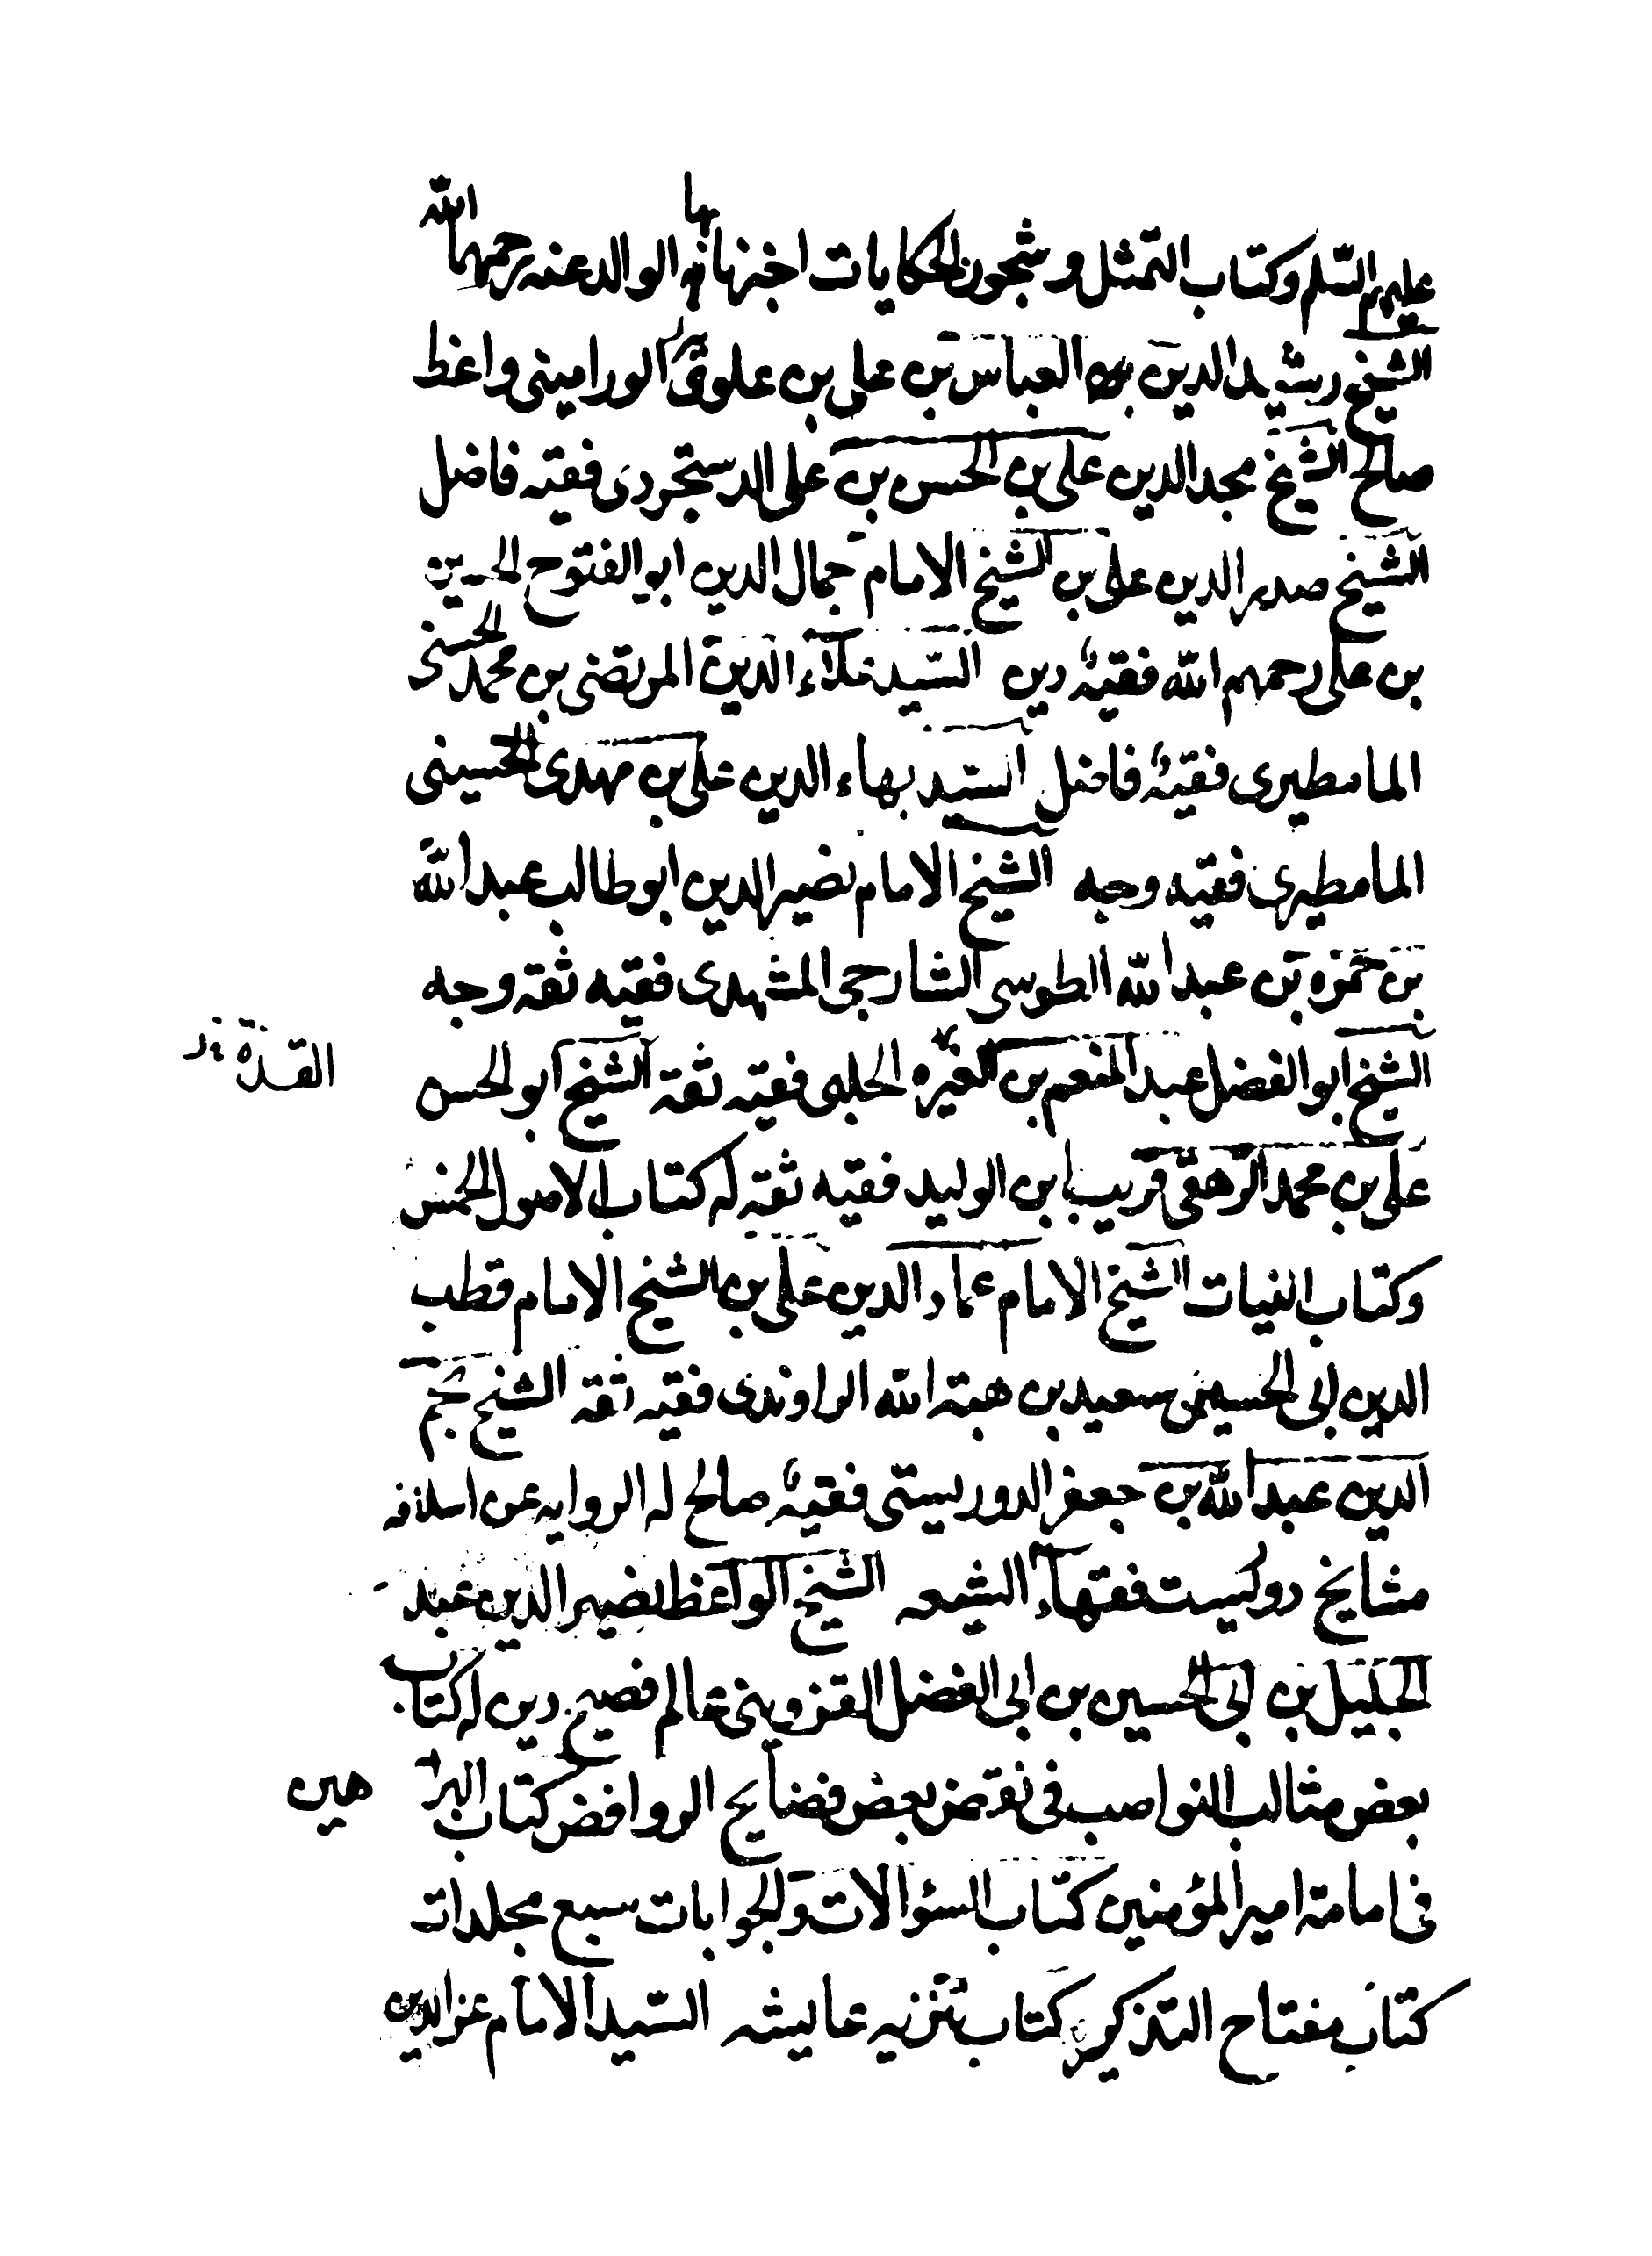 عليهم السّلم وكتاب التمثل وشجون الحكايات اخبرنا بها الوالد عنه رحمهما الله
الشيخ رشيد الدين العباس بن على بن علوية الورامينى واعظ
صالح الشيخ مجد الدين على بن الحسن بن على الدستجردى فقيه فاضل
الشيخ صدر الدين على بن الشيخ الامام جمال الدين ابو الفتوح الحسين
بن على رحمهم الله فقيه دين السّيد علاء الدين المرتضى بن محمد الحسنى
المامطيرى فقيه فاضل السّيد بهاء الدين على بن مهدى الحسينى
المامطيرى فقيه وجه الشيخ الامام نصير الدين ابو طالب عبد الله
بن حمزه بن عبد الله الطوسى الشارحى المشهدى فقيه ثقه وجه
الشيخ ابو الفضل عبد المنعم بن الغيره الحلبى فقيه ثقة الشيخ ابو الحسن
القذة
على بن محمد الزهقى قريب ابن الوليد فقيه ثقة له كتاب الاصول الخمس
وكتاب النيات الشيخ الامام عماد الدين على بن الشيخ الامام قطب
الدين ابى الحسين سعيد بن هبة الله الراوندى فقيه ثقة الشيخ نجم
الدين عبد الله بن جعفر الدوريستى فقيه صالح له الروايه عن اسلافه
مشايخ دوريست فقهاء الشيعه الشيخ الواعظ نصير الدين عبد
الجليل بن ابى الحسين بن ابى الفضل القزوينى عالم فصيح دين له كتاب
بعض مثالب النواصب فى نقض بعض فضايح الروافض كتاب البرا هين
فى امامة امير المؤمنين كتاب السؤالات والجوابات سبع مجلدات
كتاب مفتاح التذكير كتاب تنزيه عايشه السّيد الامام عز الدين